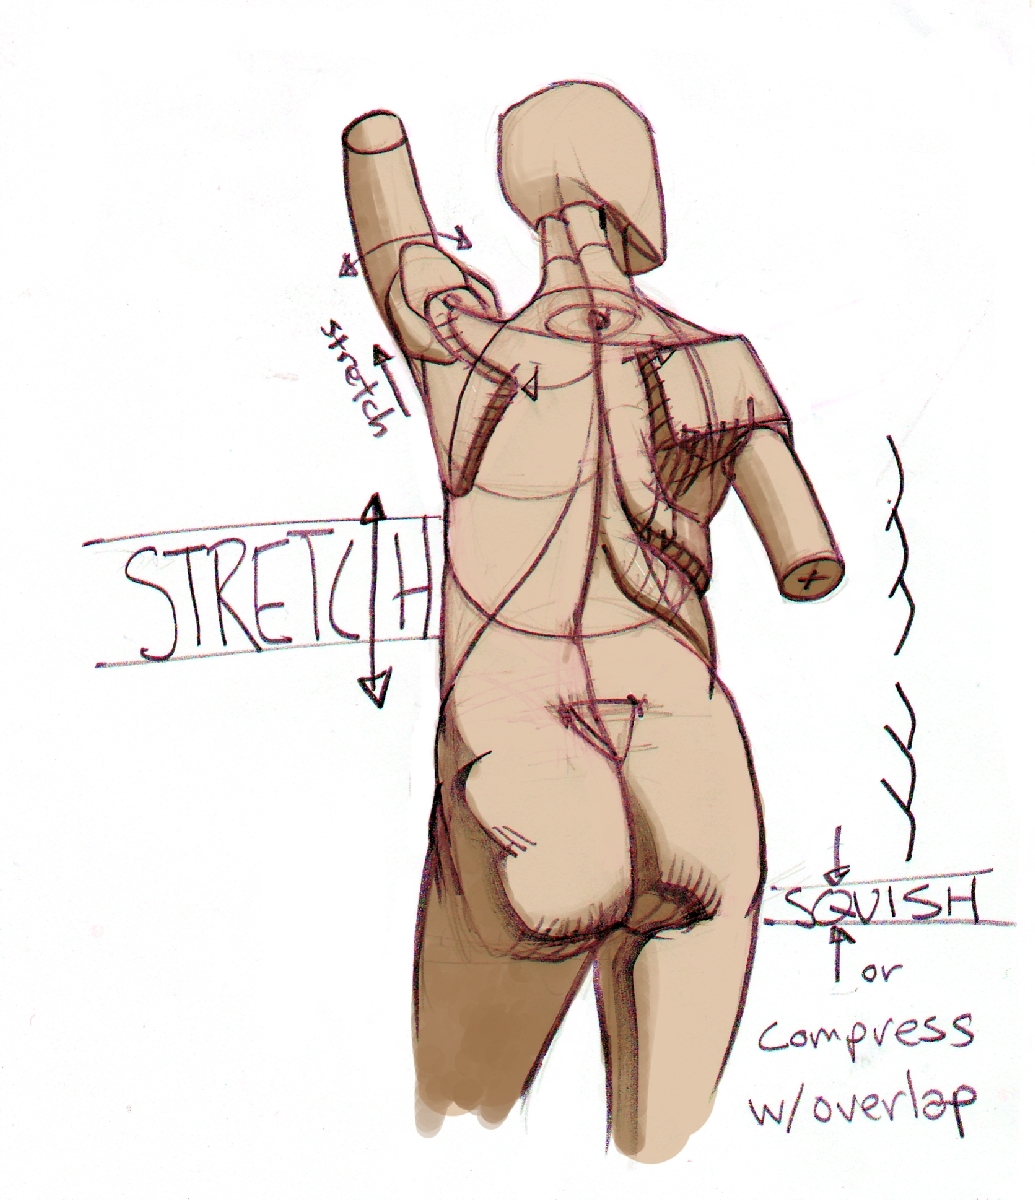 stretch
STRETCH
SQUISH
or
compress
w/overlap